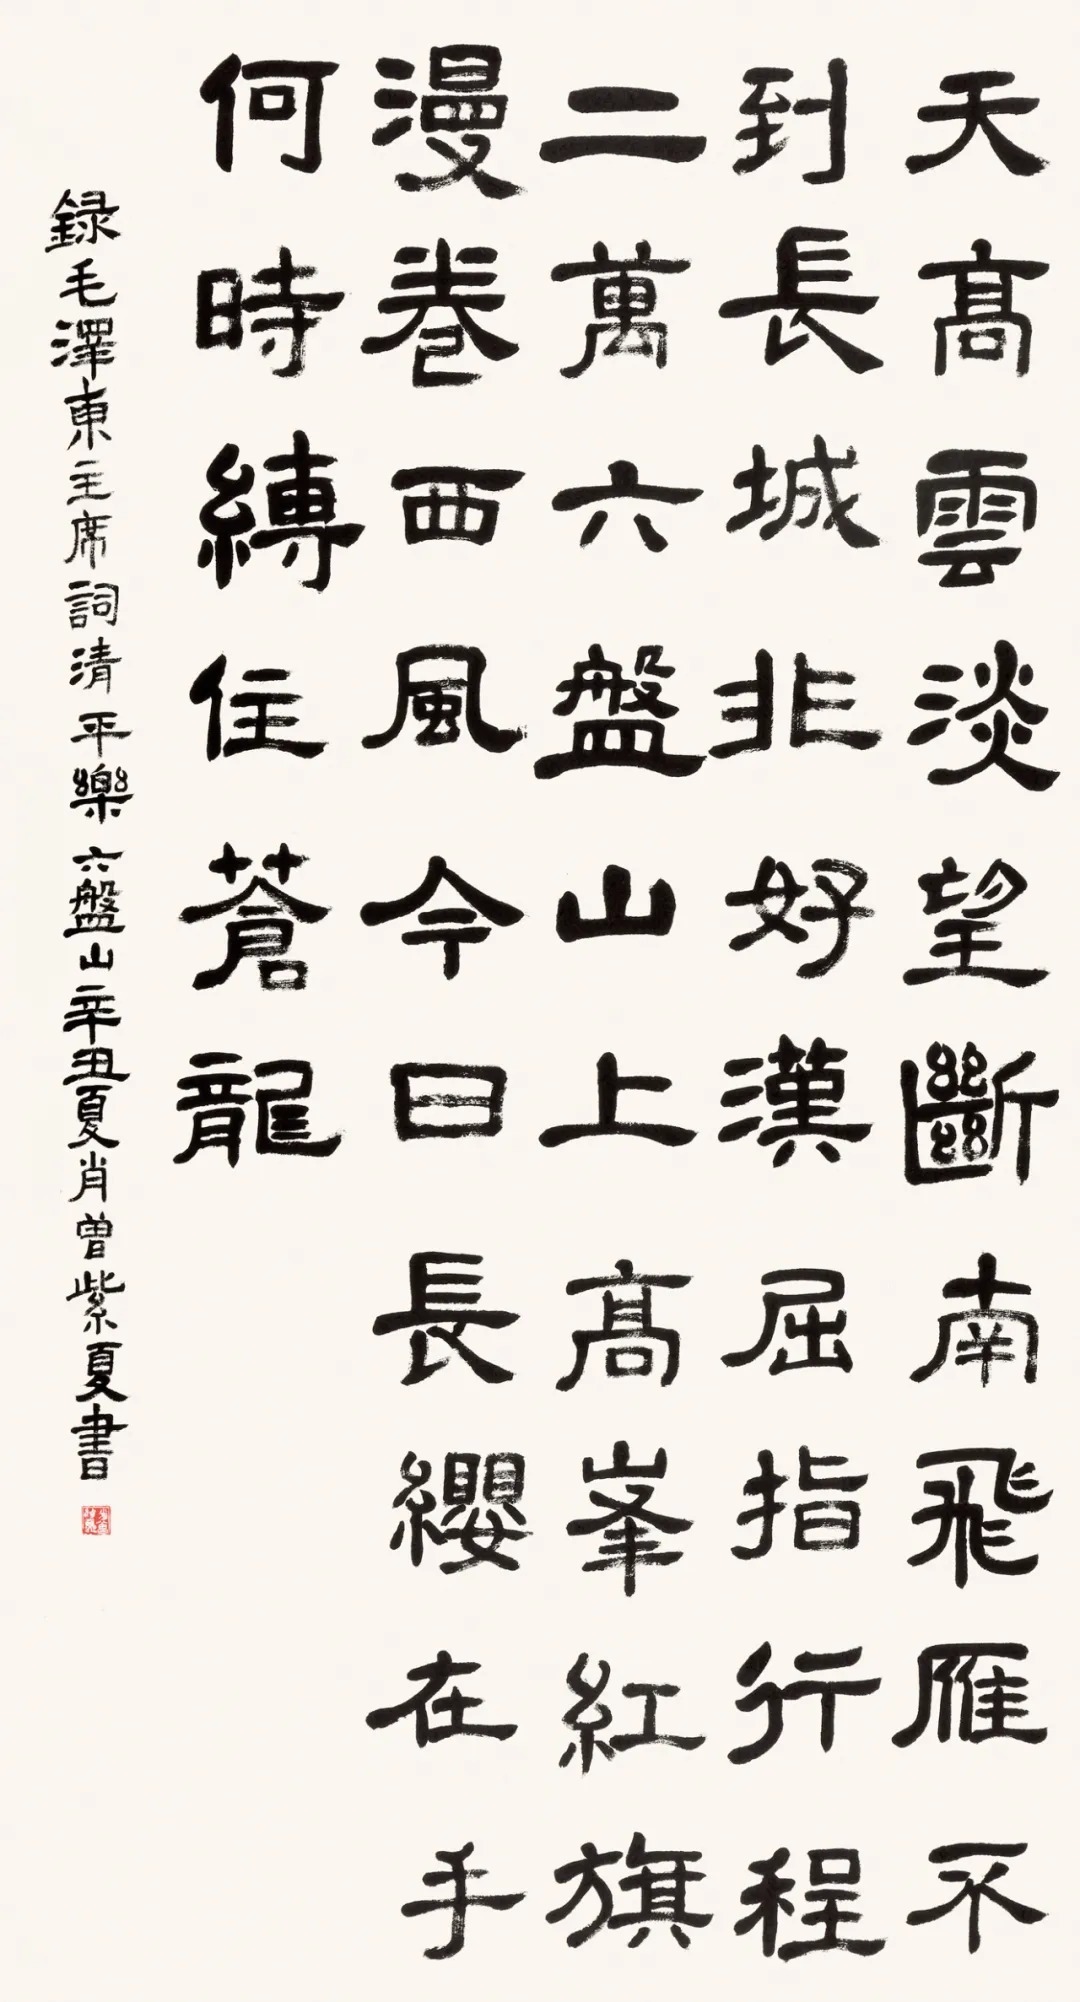 天高雲淡望斷南飛雁不
到長城非好漢屈指行程
二萬六盤山上高峯紅旗
漫卷西風今日長纓在手
何時縛住蒼龍
録毛澤東主席詞清平樂六盤山辛丑夏肖曾紫夏書